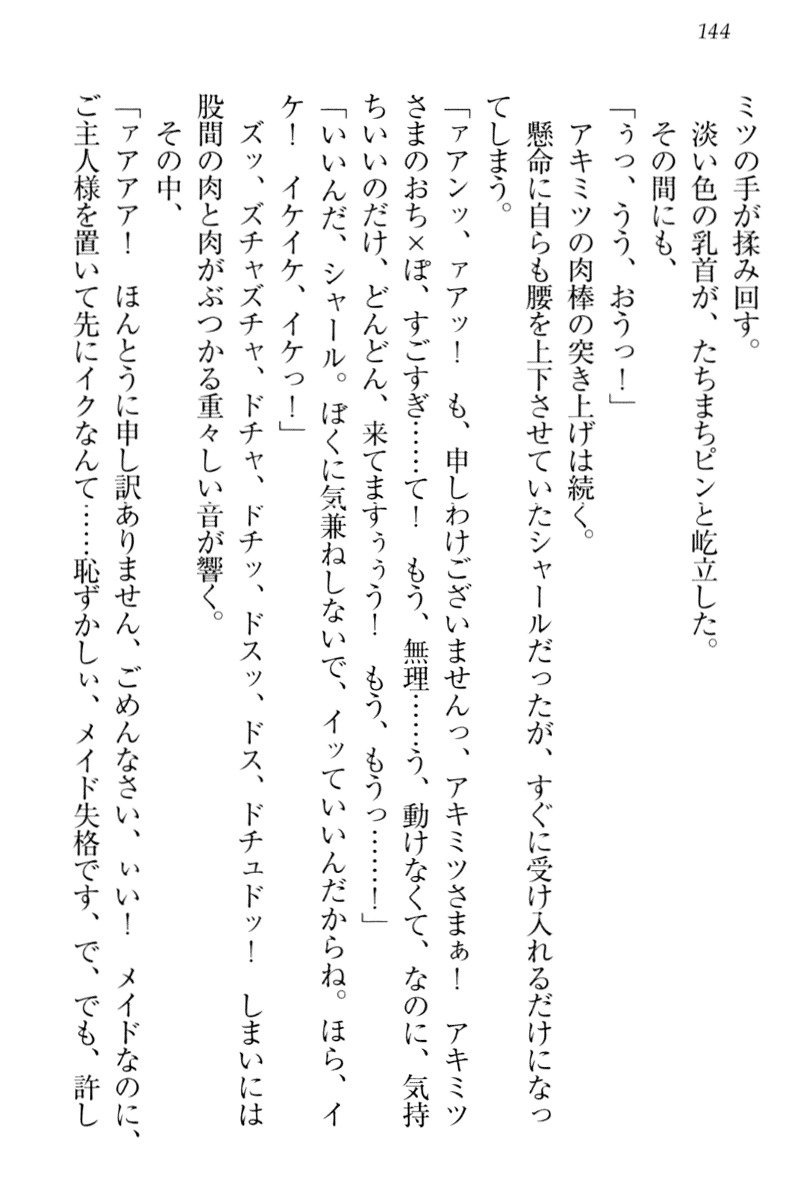 144
ミツの手が揉み回す。
淡い色の乳首が、たちまちピンと屹立した。
その間にも、
「ぅっ、うう、おうっ！」
アキミツの肉棒の突き上げは続く。
懸命に自らも腰を上下させていたシャールだったが、すぐに受け入れるだけになっ
てしまう。
「ァアンッ、ァアッ！　も、申しわけございませんっ、アキミツさまぁ！　アキミツ
さまのおち×ぽ、すごすぎ……て！　もう、無理……う、動けなくて、なのに、気持
ちいいのだけ、どんどん、来てますぅぅう！　もう、もうっ……！」
「いいんだ、シャール。ぼくに気兼ねしないで、イッていいんだからね。ほら、イ
ケ！　イケイケ、イケっ！」
ズッ、ズチャズチャ、ドチャ、ドチッ、ドスッ、ドス、ドチュドッ！　しまいには
股間の肉と肉がぶつかる重々しい音が響く。
その中、
「ァアアア！　ほんとうに申し訳ありません、ごめんなさい、ぃい！　メイドなのに、
ご主人様を置いて先にイクなんて……恥ずかしぃ、メイド失格です、で、でも、許し